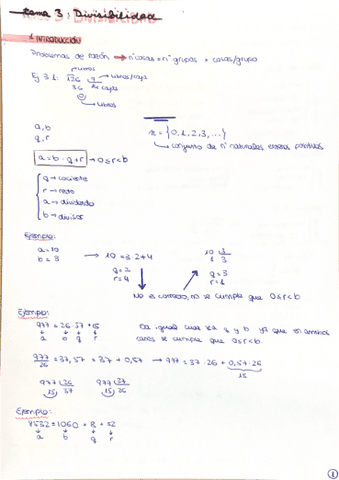 tema 3: Divisibilidad
1. INTRODUCCIÓN
Problemas de razón → nº cosas = nº grupos × cosas/grupo
Ej 3.1:
a, b
q, r
N = {0, 1, 2, 3, ...}
conjunto de nº naturales enteros positivos
a = b · q + r → 0 ≤ r < b
q → cociente
r → resto
a → dividendo
b → divisor
Ejemplo:
a = 10
b = 3
→ 10 = 3·2+4
q = 2
r = 4
10 3
1 3
q = 3
r = 1
No es correcto, no se cumple que 0≤r<b
Ejemplo:
977 = 26·37 + 15
a b q r
Da igual cual sea q y b ya que en ambos
casos se cumple que 0≤r<b.
977/26 = 37,57 = 37 + 0,57 → 977 = 37·26 + 0,57·26
15
977 26
15 37
977 37
15 26
Ejemplo:
8532 = 1060 · 8 + 52
a b q r
1